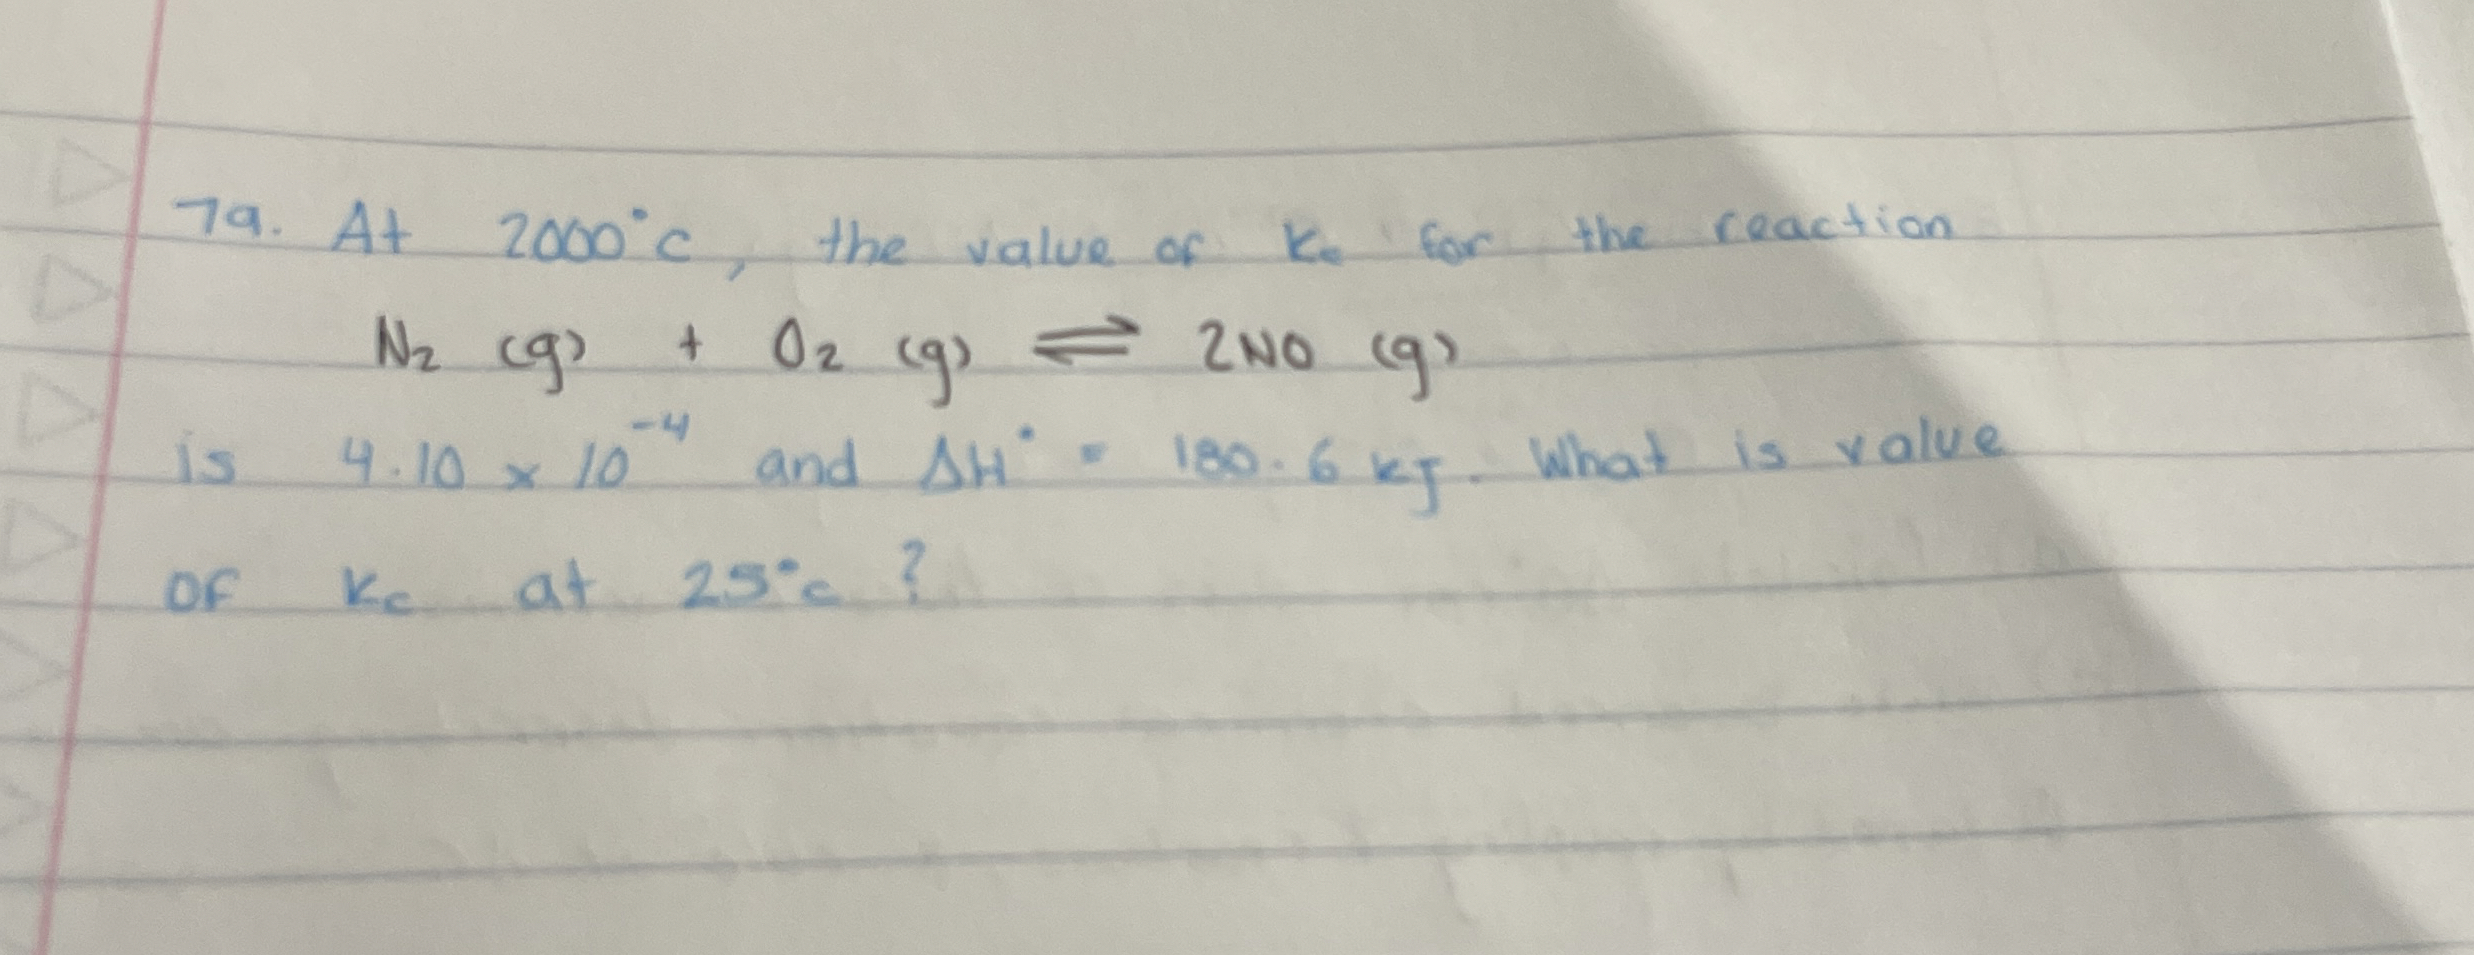 79. At 2000°c, the value of Kc for the reaction
N₂ (g) + O₂ (g) ⇌ 2NO (g)
is 4.10 × 10⁻⁴ and ΔH° = 180.6 kJ. What is value
of Kc at 25°c ?